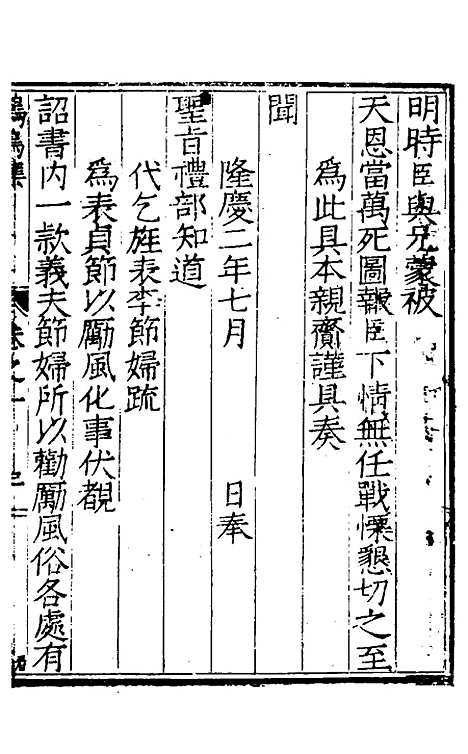 明時臣與兄蒙被
天恩當萬死圖報臣下情無任戰慄懇切之至
為此具本親齎謹具奏
聞
隆慶二年七月 日奉
聖旨禮部知道
代乞旌表李節婦疏
為表貞節以勵風化事伏覩
詔書内一款義夫節婦所以勸勵風俗各處有